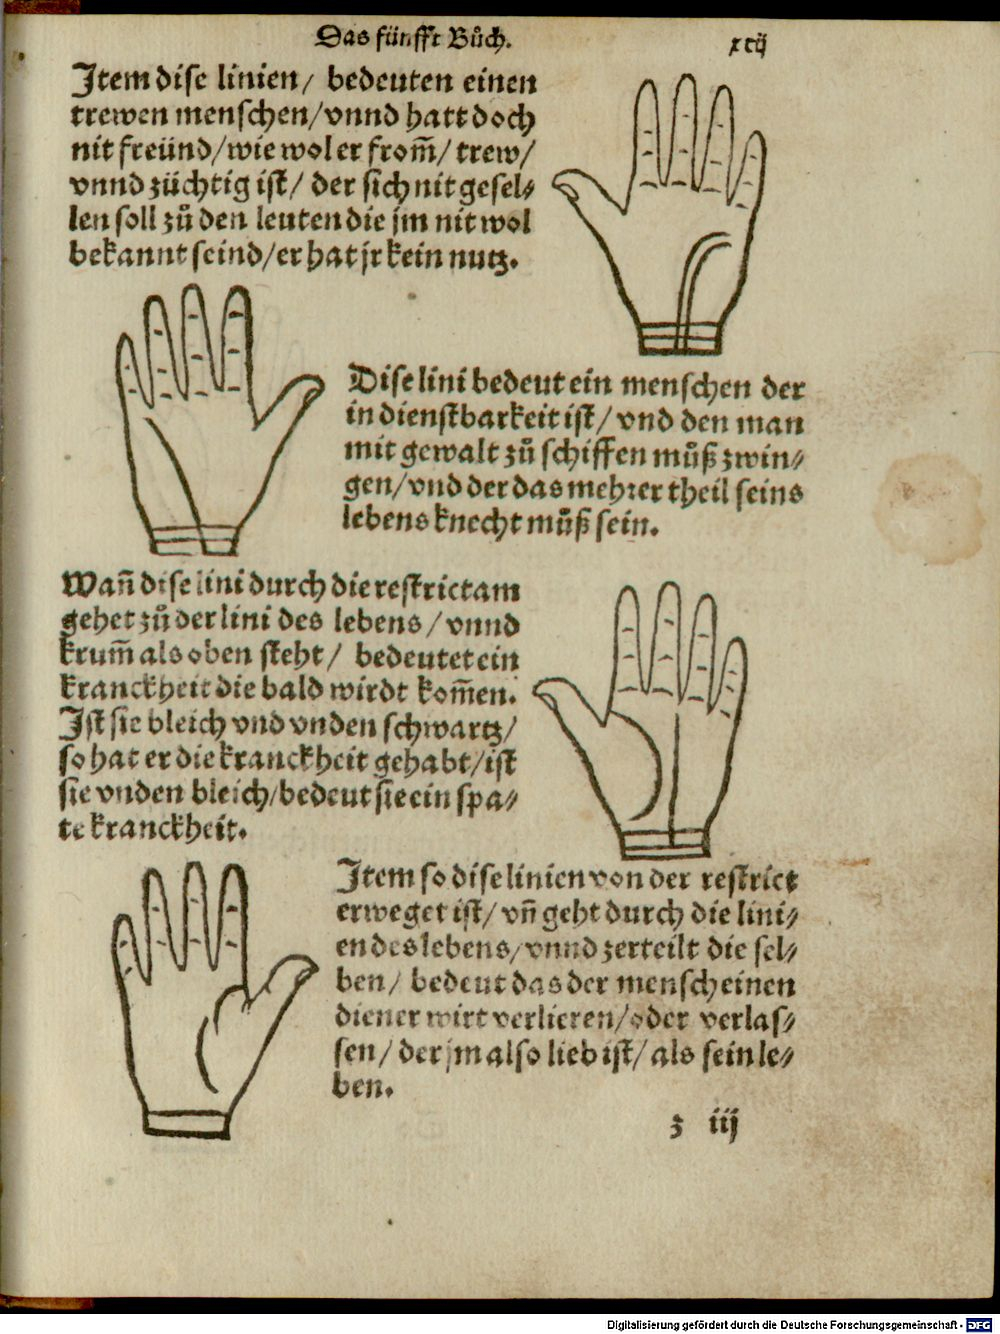 Das fünfft Bůch. xcij
Item dise linien/ bedeuten einen
trewen menschen/vnnd hatt doch
nit freünd/wie wol er from̃/ trew/
vnnd züchtig ist/ der sich nit gesel⸗
len soll zů den leuten die jm nit wol
bekannt seind/er hat jr kein nutz.
Dise lini bedeut ein menschen der
in dienstbarkeit ist/ vnd den man
mit gewalt zů schiffen můß zwin⸗
gen/vnd der das mehrer theil seins
lebens knecht můß sein.
Wañ dise lini durch die restrictam
gehet zů der lini des lebens/ vnnd
krum̃ als oben steht/ bedeutet ein
kranckheit die bald wirdt kom̃en.
Ist sie bleich vnd vnden schwartz/
so hat er die kranckheit gehabt/ist
sie vnden bleich/bedeut sie ein spa⸗
te kranckheit.
Item so dise linien von der restrict
erweget ist/ vñ geht durch die lini⸗
en des lebens/vnnd zerteilt die sel⸗
ben/ bedeut das der mensch einen
diener wirt verlieren/oder verlas⸗
sen/ der jm also lieb ist/ als sein le⸗
ben.
z iij
Digitalisierung gefördert durch die Deutsche Forschungsgemeinschaft - DFG